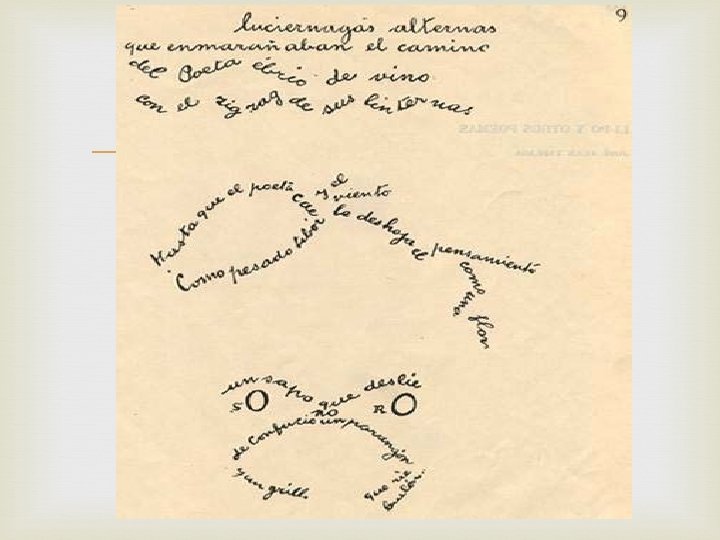 9
luciernagas alternas
que enmarañaban el camino
del Poeta ébrio de vino
con el zigzag de sus linternas
LI-PO Y OTROS POEMAS
JOSÉ JUAN TABLADA
Hasta que el poeta cae
Como pesado tibor
y el
viento
le deshoja el pensamiento
como una flor
un sapo que deslie
SO no RO
de Confucio un parangón
y un grillo
que rie
burlón.